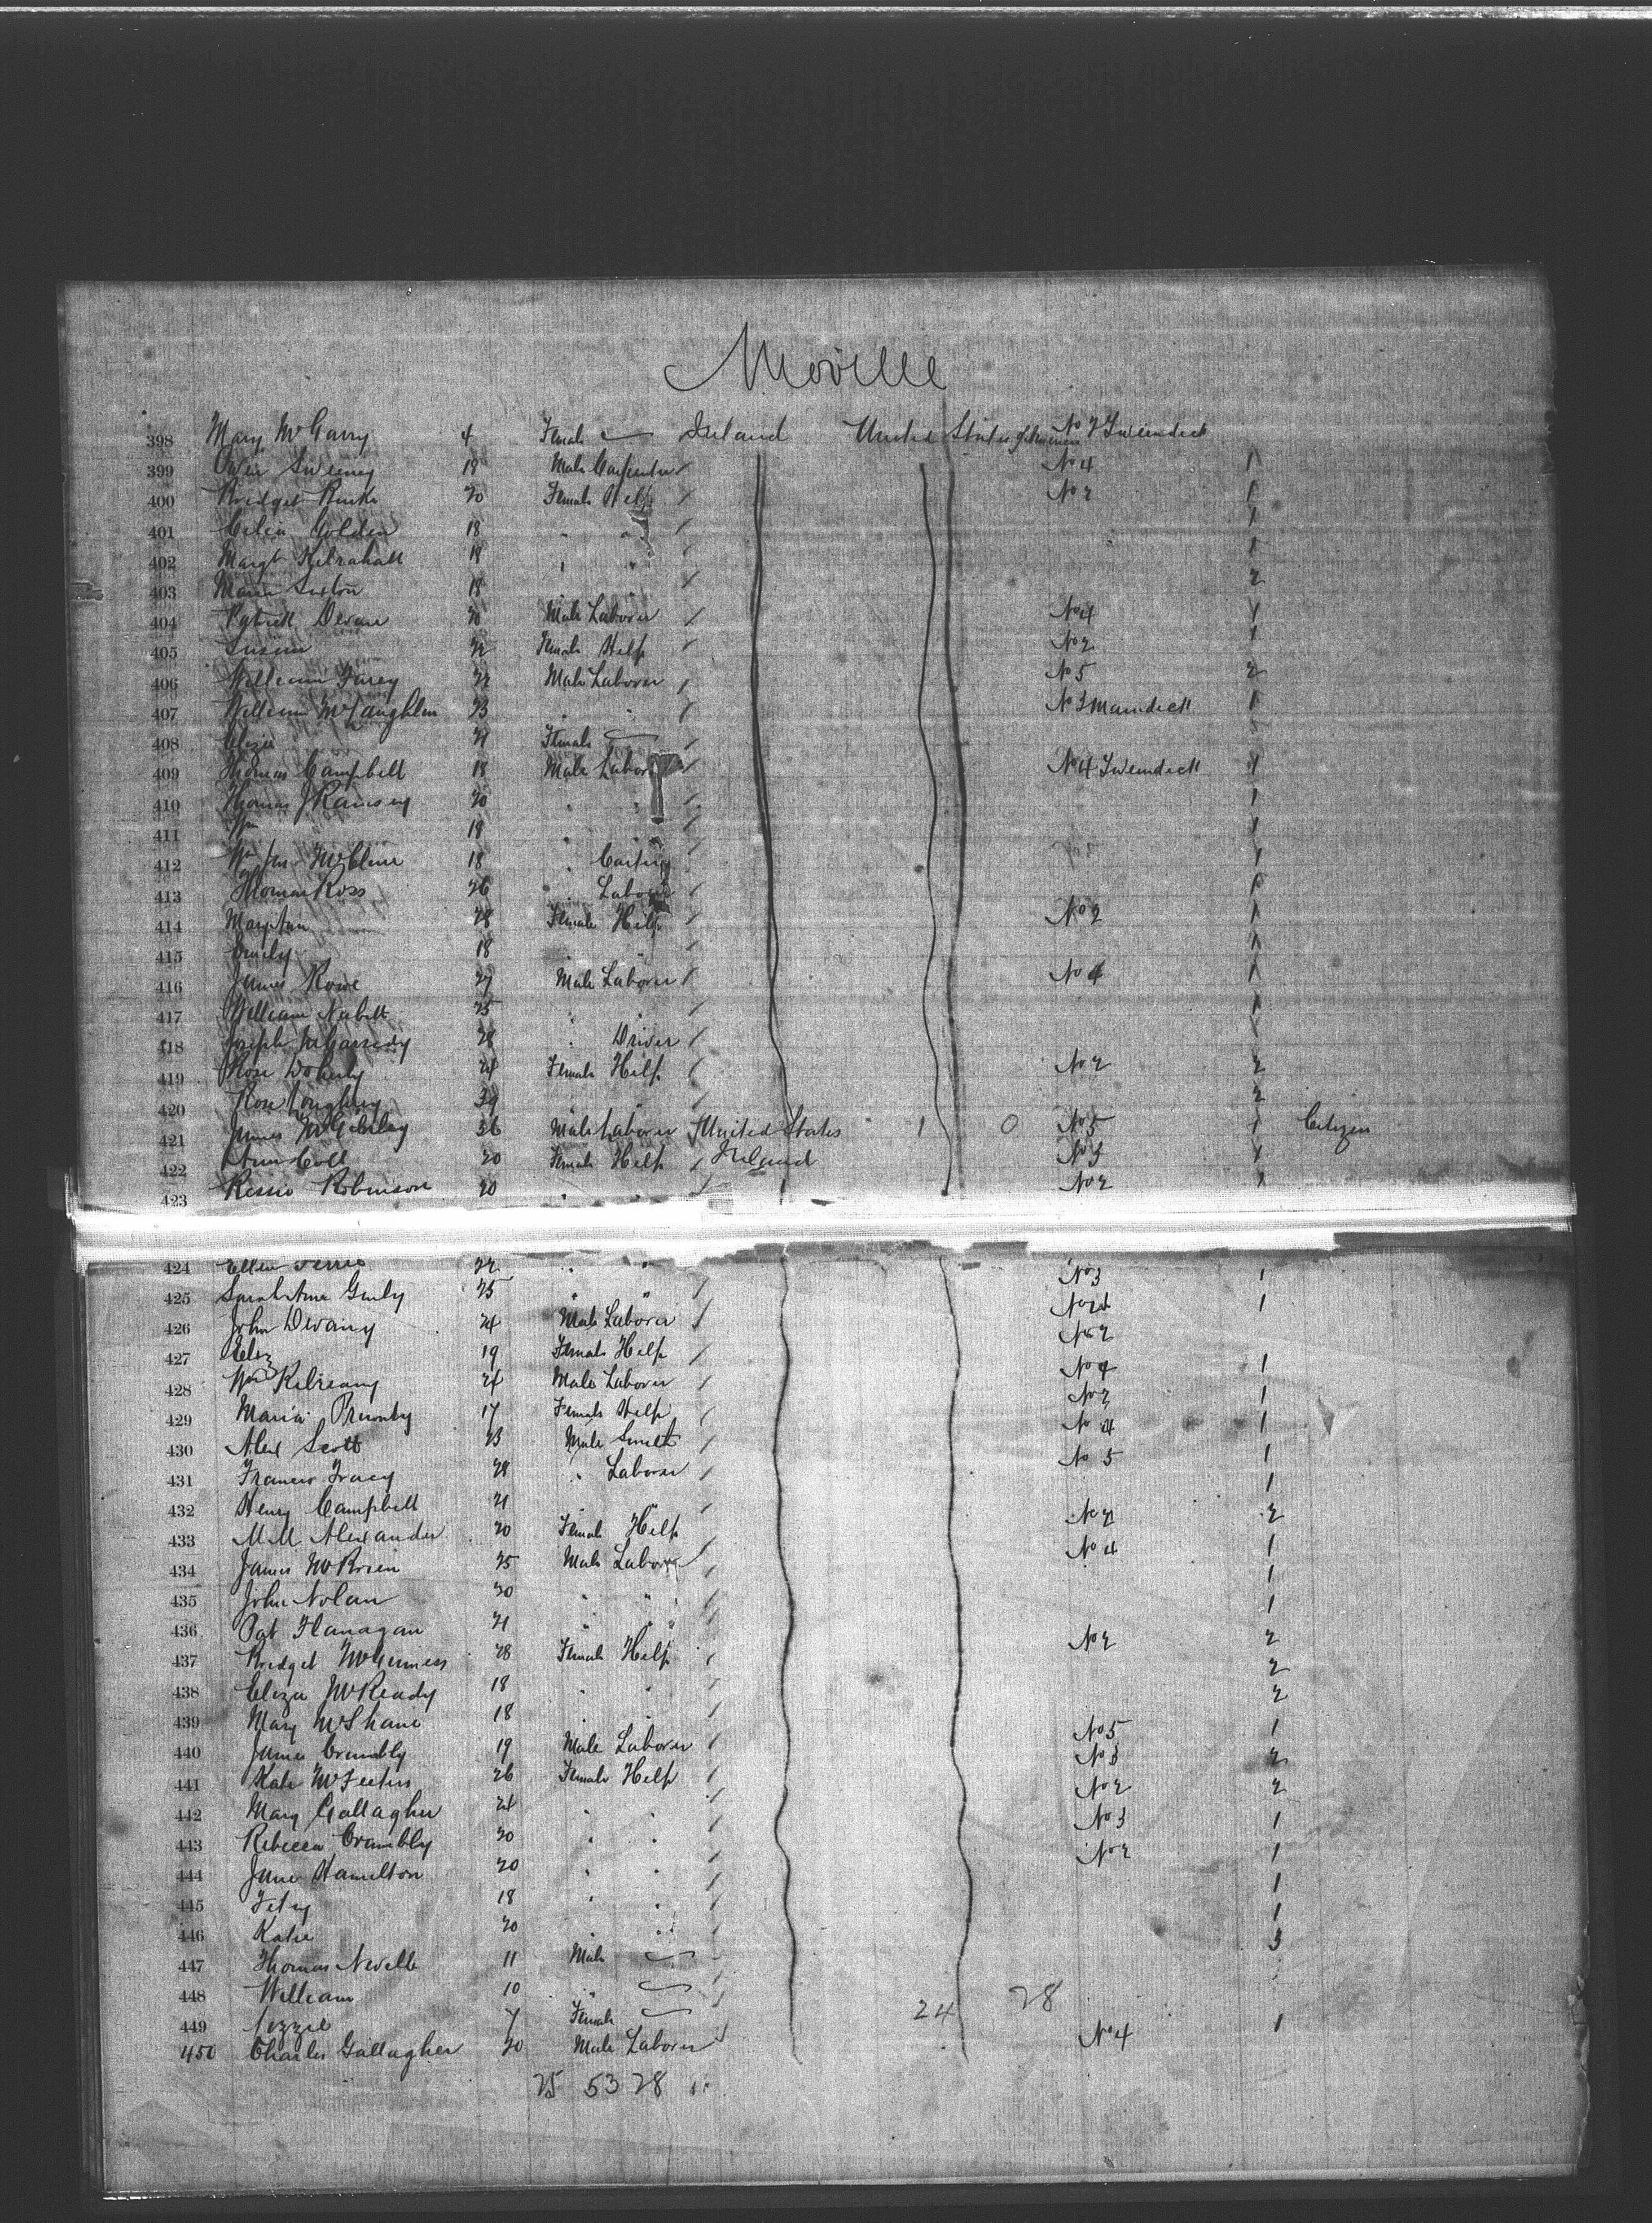 Moville
398 Mary McGarry 4 Female Ireland United States No 2 Tweendeck
399 Owen Sweeney 19 Male Carpenter No 4 1
400 Bridget Burke 20 Female Help No 2 1
401 Celia Golden 18 " " 1
402 Margt 18 " " 1
403 Maria Sexton 18 " " 2
404 Patrick Devan 20 Male Laborer No 4 1
405 Susan 22 Female Help No 2 1
406 William Farey 22 Male Laborer No 5 2
407 William McLaughlin 23 " " No 3 Maindeck 1
408 Eliza 21 Female
409 Thomas Campbell 18 Male Labor No 4 Tweendeck 1
410 Thomas J Ramsey 20 " " 1
411 Wm 19 " " 1
412 Wm Jno McClure 18 " 1
413 Thomas Ross 26 " Laborer 1
414 Mary Ann 28 Female Help No 2 1
415 Emily 18 " " 1
416 James Rowe 27 Male Laborer No 4 1
417 William Nesbitt 25 " " 1
418 Joseph 28 " Driver 1
419 Rose Doherty 24 Female Help No 2 2
420 Rose Loughrey 39 " " 2
421 James 36 Male Laborer United States 1 0 No 5 1 Citizen
422 Ann Coll 20 Female Help Ireland No 3 1
423 Ressie Robinson 20 " " No 2 1
424 Ellen Ferris 22 " " No 3 1
425 Sarah Ann 25 " " 1
426 John Dwainy 24 Male Laborer No 2
427 Eliz 19 Female Help
428 Wm Kilreany 24 Male Laborer No 4 1
429 Maria 17 Female Help No 2 1
430 Alex Scott 23 Male Smith No 4 1
431 Francis Tracy 28 " Laborer No 5 1
432 Henry Campbell 21 " " 1
433 M M Alexander 20 Female Help No 2 2
434 James McBrien 25 Male Laborer No 4 1
435 John Nolan 20 " " 1
436 Pat Flanagan 21 " " 1
437 Bridget McGinness 28 Female Help No 2 2
438 Eliza McReady 18 " " 2
439 Mary McShane 18 " " 2
440 James Crumbly 19 Male Laborer No 5 1
441 Kate McFeeters 26 Female Help No 3 2
442 Mary Gallagher 24 " " No 2 2
443 Rebecca Crambly 20 " " No 3 1
444 Jane Hamilton 20 " " No 2 1
445 18 " " 1
446 Katie 20 " " 1
447 Thomas Nevelle 11 Male 3
448 William 10 "
449 Lizzie 7 Female 24 28
450 Charles Gallagher 20 Male Laborer No 4 1
25 53 28